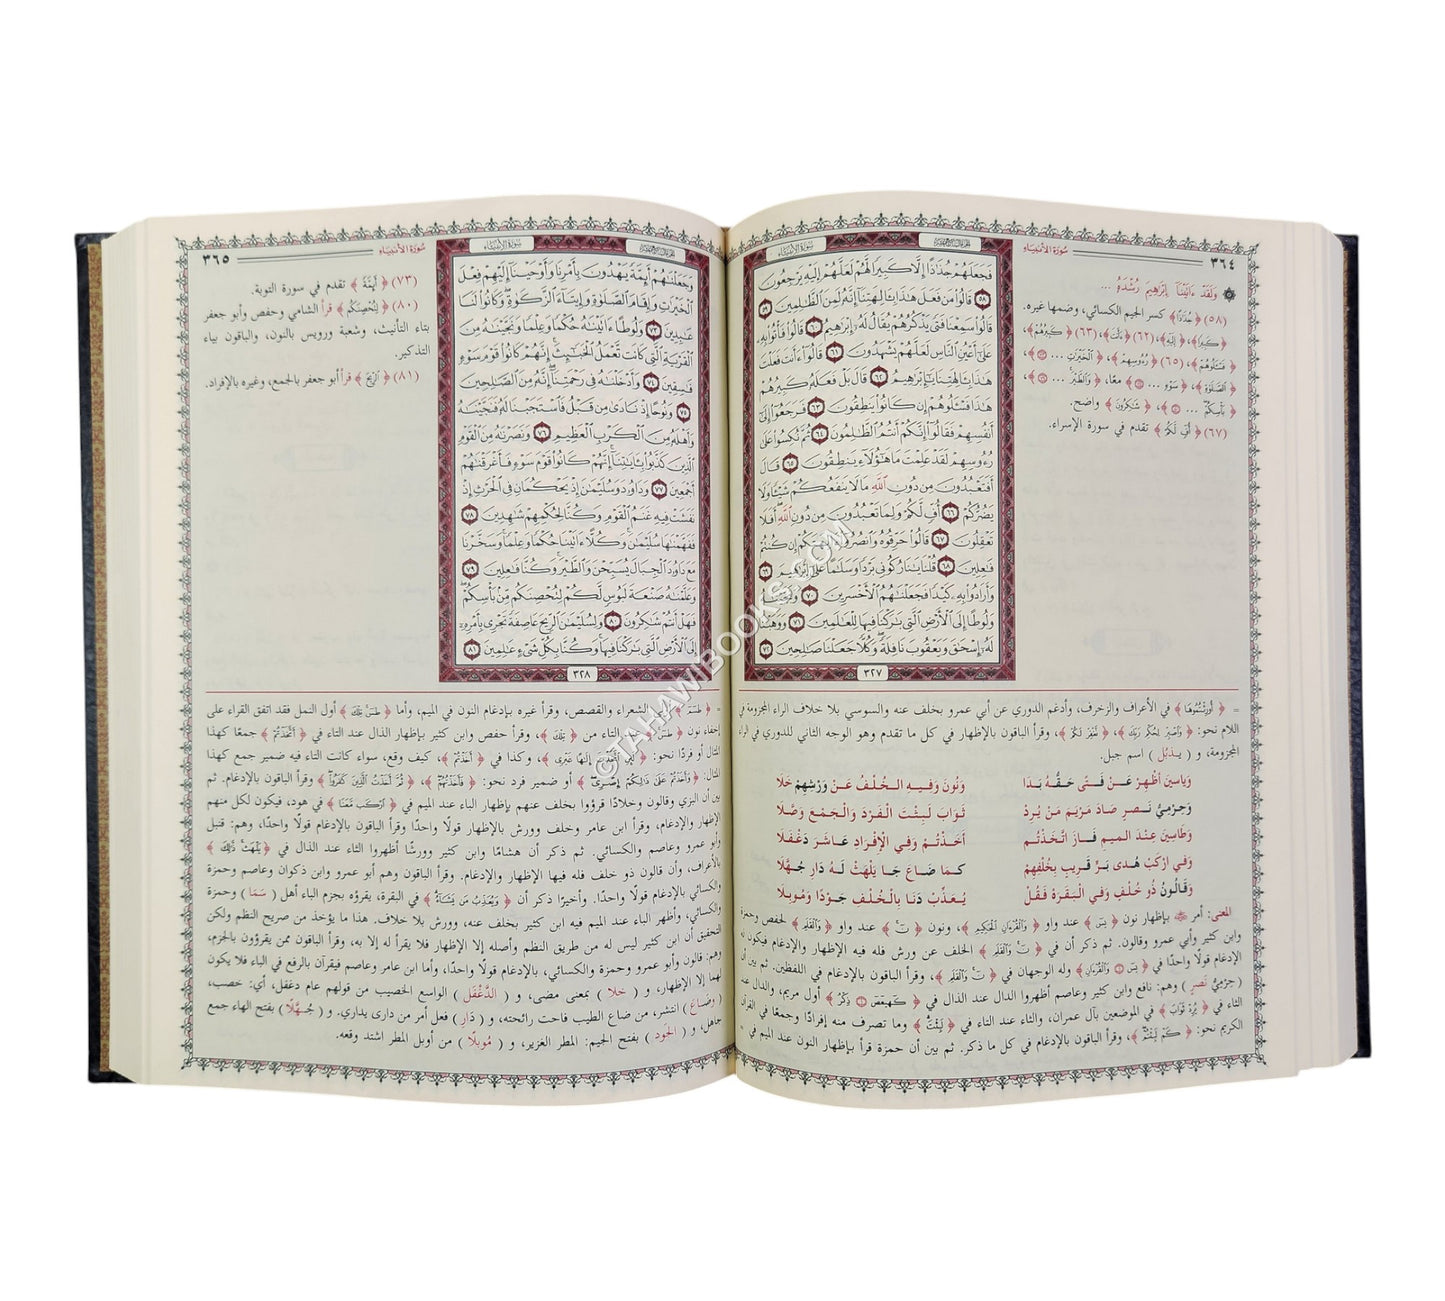 ٣٦٤
سُورَةُ الأَنبِيَاءِ
وَلَقَدْ ءَاتَيْنَآ إِبْرَٰهِيمَ رُشْدَهُۥ ...
(٥٨) ﴿ جُذَٰذًا ﴾ كسر الجيم الكسائي، وضمها غيره.
﴿ كَبِيرًا ﴾، ﴿ إِلَيْهِ ﴾، (٦٢) ﴿ ءَأَنتَ ﴾، (٦٣) ﴿ كَبِيرُهُمْ ﴾،
﴿ فَسْـَٔلُوهُمْ ﴾، (٦٥) ﴿ رُءُوسِهِمْ ﴾، ﴿ ٱلْخَيْرَٰتِ ...
﴿ ٱلصَّلَوٰةِ ﴾، ﴿ سَوْءٍ ... ﴾ معًا، ﴿ وَٱلطَّيْرَ ...
﴿ بَأْسِكُمْ ... ﴾، ﴿ شَٰكِرُونَ ﴾ واضح.
(٦٧) ﴿ أُفٍّ لَّكُمْ ﴾ تقدم في سورة الإسراء.
سُورَةُ الأَنبِيَاءِ
فَجَعَلَهُمْ جُذَٰذًا إِلَّا كَبِيرًا لَّهُمْ لَعَلَّهُمْ إِلَيْهِ يَرْجِعُونَ
٥٨ قَالُوا۟ مَن فَعَلَ هَٰذَا بِـَٔالِهَتِنَآ إِنَّهُۥ لَمِنَ ٱلظَّٰلِمِينَ ٥٩
قَالُوا۟ سَمِعْنَا فَتًى يَذْكُرُهُمْ يُقَالُ لَهُۥٓ إِبْرَٰهِيمُ ٦٠ قَالُوا۟ فَأْتُوا۟ بِهِۦ
عَلَىٰٓ أَعْيُنِ ٱلنَّاسِ لَعَلَّهُمْ يَشْهَدُونَ ٦١ قَالُوٓا۟ ءَأَنتَ فَعَلْتَ
هَٰذَا بِـَٔالِهَتِنَا يَٰٓإِبْرَٰهِيمُ ٦٢ قَالَ بَلْ فَعَلَهُۥ كَبِيرُهُمْ
هَٰذَا فَسْـَٔلُوهُمْ إِن كَانُوا۟ يَنطِقُونَ ٦٣ فَرَجَعُوٓا۟ إِلَىٰٓ
أَنفُسِهِمْ فَقَالُوٓا۟ إِنَّكُمْ أَنتُمُ ٱلظَّٰلِمُونَ ٦٤ ثُمَّ نُكِسُوا۟ عَلَىٰ
رُءُوسِهِمْ لَقَدْ عَلِمْتَ مَا هَٰٓؤُلَآءِ يَنطِقُونَ ٦٥ قَالَ
أَفَتَعْبُدُونَ مِن دُونِ ٱللَّهِ مَا لَا يَنفَعُكُمْ شَيْـًٔا وَلَا
يَضُرُّكُمْ ٦٦ أُفٍّ لَّكُمْ وَلِمَا تَعْبُدُونَ مِن دُونِ ٱللَّهِ أَفَلَا
تَعْقِلُونَ ٦٧ قَالُوا۟ حَرِّقُوهُ وَٱنصُرُوٓا۟ ءَالِهَتَكُمْ إِن كُنتُمْ
فَٰعِلِينَ ٦٨ قُلْنَا يَٰنَارُ كُونِى بَرْدًا وَسَلَٰمًا عَلَىٰٓ إِبْرَٰهِيمَ ٦٩
وَأَرَادُوا۟ بِهِۦ كَيْدًا فَجَعَلْنَٰهُمُ ٱلْأَخْسَرِينَ ٧٠ وَنَجَّيْنَٰهُ
وَلُوطًا إِلَى ٱلْأَرْضِ ٱلَّتِى بَٰرَكْنَا فِيهَا لِلْعَٰلَمِينَ ٧١ وَوَهَبْنَا
لَهُۥٓ إِسْحَٰقَ وَيَعْقُوبَ نَافِلَةً وَكُلًّا جَعَلْنَا صَٰلِحِينَ ٧٢
٣٢٧
= ﴿ أُورِثْتُمُوهَا ﴾ في الأعراف والزخرف، وأدغم الدوري عن أبي عمرو بخلف عنه والسوسي بلا خلاف الراء المجزومة في
اللام نحو: ﴿ وَٱصْبِرْ لِحُكْمِ رَبِّكَ ﴾، ﴿ نَغْفِرْ لَكُمْ ﴾، وقرأ الباقون بالإظهار في كل ما تقدم وهو الوجه الثاني للدوري في الراء
المجزومة، و ( يـذبُل ) اسم جبل.
وَيَاسِينَ أَظْهِرْ عَنْ فَـتًى حَقُّـهُ بَـدَا وَنُونَ وَفِيهِ الـخُلْفُ عَنْ وَرْشِهِمْ خَلَا
وَحِرْمِيُّ نَـصْرٍ صَادَ مَرْيَمَ مَنْ يُرِدْ ثَوَابَ لَبِثْتَ الْفَرْدَ وَالْجَمْعَ وَصَّلَا
وَطَاسِينَ عِنْدَ المِيمِ فَـازَ اتَّخَذْتُمُ أَخَذْتُمْ وَفِي الْإِفْرَادِ عَاشَرَ دَغْفَلَا
وَفِي ارْكَبْ هُدَى بَرٍّ قَرِيبٍ بِخُلْفِهِمْ كَمَا ضَاعَ جَا يَلْهَثْ لَهُ دَارِ جُهَّلَا
وَقَالُونُ ذُو خُلْفٍ وَفِي الْبَقَرَهْ فَقُلْ يُعَذِّبْ دَنَا بِالْخُلْفِ جَوْدًا وَمُوبِلَا
المعنى: أمر ﷺ بإظهار نون ﴿ يسٓ ﴾ عند واو ﴿ وَٱلْقُرْءَانِ ٱلْحَكِيمِ ﴾، ونون ﴿ نٓ ﴾ عند واو ﴿ وَٱلْقَلَمِ ﴾ لحفص وحمزة
وابن كثير وأبي عمرو وقالون. ثم ذكر أن في ﴿ نٓ وَٱلْقَلَمِ ﴾ الخلف عن ورش فله فيه الإظهار والإدغام فيكون له
الإدغام قولًا واحدًا في ﴿ يسٓ وَٱلْقُرْءَانِ ﴾ وله الوجهان في ﴿ نٓ وَٱلْقَلَمِ ﴾، وقرأ الباقون بالإدغام في اللفظين. ثم بين أن
( حِرْمِيُّ نَصْرٍ ) وهم: نافع وابن كثير وعاصم أظهروا الدال عند الذال في ﴿ كٓهيعٓصٓ ذِكْرُ ﴾ أول مريم، والدال عند
الثاء في ﴿ يُرِدْ ثَوَابَ ﴾ في الموضعين بآل عمران، والثاء عند التاء في ﴿ لَبِثْتَ ﴾ وما تصرف منه إفرادًا وجمعًا في القرآن
الكريم نحو: ﴿ كَمْ لَبِثْتُمْ ﴾، وقرأ الباقون بالإدغام في كل ما ذكر. ثم بين أن حمزة قرأ بإظهار النون عند الميم في =
٣٦٥
سُورَةُ الأَنبِيَاءِ
(٧٣) ﴿ أَئِمَّةً ﴾ تقدم في سورة التوبة.
(٨٠) ﴿ لِتُحْصِنَكُم ﴾ قرأ الشامي وحفص وأبو جعفر
بتاء التأنيث، وشعبة ورويس بالنون، والباقون بياء
التذكير.
(٨١) ﴿ ٱلرِّيحَ ﴾ قرأ أبو جعفر بالجمع، وغيره بالإفراد.
سُورَةُ الأَنبِيَاءِ
وَجَعَلْنَٰهُمْ أَئِمَّةً يَهْدُونَ بِأَمْرِنَا وَأَوْحَيْنَآ إِلَيْهِمْ فِعْلَ
ٱلْخَيْرَٰتِ وَإِقَامَ ٱلصَّلَوٰةِ وَإِيتَآءَ ٱلزَّكَوٰةِ وَكَانُوا۟ لَنَا
عَٰبِدِينَ ٧٣ وَلُوطًا ءَاتَيْنَٰهُ حُكْمًا وَعِلْمًا وَنَجَّيْنَٰهُ مِنَ
ٱلْقَرْيَةِ ٱلَّتِى كَانَت تَّعْمَلُ ٱلْخَبَٰٓئِثَ إِنَّهُمْ كَانُوا۟ قَوْمَ سَوْءٍ
فَٰسِقِينَ ٧٤ وَأَدْخَلْنَٰهُ فِى رَحْمَتِنَآ إِنَّهُۥ مِنَ ٱلصَّٰلِحِينَ
٧٥ وَنُوحًا إِذْ نَادَىٰ مِن قَبْلُ فَٱسْتَجَبْنَا لَهُۥ فَنَجَّيْنَٰهُ
وَأَهْلَهُۥ مِنَ ٱلْكَرْبِ ٱلْعَظِيمِ ٧٦ وَنَصَرْنَٰهُ مِنَ ٱلْقَوْمِ
ٱلَّذِينَ كَذَّبُوا۟ بِـَٔايَٰتِنَآ إِنَّهُمْ كَانُوا۟ قَوْمَ سَوْءٍ فَأَغْرَقْنَٰهُمْ
أَجْمَعِينَ ٧٧ وَدَاوُۥدَ وَسُلَيْمَٰنَ إِذْ يَحْكُمَانِ فِى ٱلْحَرْثِ إِذْ
نَفَشَتْ فِيهِ غَنَمُ ٱلْقَوْمِ وَكُنَّا لِحُكْمِهِمْ شَٰهِدِينَ ٧٨
فَفَهَّمْنَٰهَا سُلَيْمَٰنَ وَكُلًّا ءَاتَيْنَا حُكْمًا وَعِلْمًا وَسَخَّرْنَا
مَعَ دَاوُۥدَ ٱلْجِبَالَ يُسَبِّحْنَ وَٱلطَّيْرَ وَكُنَّا فَٰعِلِينَ ٧٩
وَعَلَّمْنَٰهُ صَنْعَةَ لَبُوسٍ لَّكُمْ لِتُحْصِنَكُم مِّنۢ بَأْسِكُمْ
فَهَلْ أَنتُمْ شَٰكِرُونَ ٨٠ وَلِسُلَيْمَٰنَ ٱلرِّيحَ عَاصِفَةً تَجْرِى بِأَمْرِهِۦٓ
إِلَى ٱلْأَرْضِ ٱلَّتِى بَٰرَكْنَا فِيهَا وَكُنَّا بِكُلِّ شَىْءٍ عَٰلِمِينَ ٨١
٣٢٨
= ﴿ طسٓمٓ ﴾ الشعراء والقصص، وقرأ غيره بإدغام النون في الميم، وأما ﴿ طسٓ تِلْكَ ﴾ أول النمل فقد اتفق القراء على
إخفاء نون ﴿ طسٓ ﴾ التاء من ﴿ تِلْكَ ﴾، وقرأ حفص وابن كثير بإظهار الذال عند التاء في ﴿ ٱتَّخَذْتُمْ ﴾ جمعًا كهذا
المثال أو فردًا نحو: ﴿ لَئِنِ ٱتَّخَذْتَ إِلَٰهًا غَيْرِى ﴾، وكذا في ﴿ أَخَذْتُمْ ﴾، كيف وقع، سواء كانت التاء فيه ضمير جمع كهذا
المثال: ﴿ وَأَخَذْتُمْ عَلَىٰ ذَٰلِكُمْ إِصْرِى ﴾ أو ضمير فرد نحو: ﴿ فَأَخَذْتُهُمْ ﴾، ﴿ ثُمَّ أَخَذْتُ ٱلَّذِينَ كَفَرُوا۟ ﴾ وقرأ الباقون بالإدغام. ثم
بين أن البزي وقالون وخلادًا قرؤوا بخلف عنهم بإظهار الباء عند الميم في ﴿ ٱرْكَب مَّعَنَا ﴾ في هود، فيكون لكل منهم
الإظهار والإدغام، وقرأ ابن عامر وخلف وورش بالإظهار قولًا واحدًا وقرأ الباقون بالإدغام قولًا واحدًا، وهم: قنبل
وأبو عمرو وعاصم والكسائي. ثم ذكر أن هشامًا وابن كثير وورشًا أظهروا الثاء عند الذال في ﴿ يَلْهَثْ ذَّٰلِكَ ﴾
بالأعراف، وأن قالون ذو خلف فله فيها الإظهار والإدغام. وقرأ الباقون وهم أبو عمرو وابن ذكوان وعاصم وحمزة
والكسائي بالإدغام قولًا واحدًا. وأخيرًا ذكر أن ﴿ وَيُعَذِّبُ مَن يَشَآءُ ﴾ في البقرة، يقرؤه بجزم الباء أهل ( سَمَا ) وحمزة
والكسائي، وأظهر الباء عند الميم فيه ابن كثير بخلف عنه، وورش بلا خلاف. هذا ما يؤخذ من صريح النظم ولكن
التحقيق أن ابن كثير ليس له من طريق النظم وأصله إلا الإظهار فلا يقرأ له إلا به، وقرأ الباقون ممن يقرؤون بالجزم،
وهم: قالون وأبو عمرو وحمزة والكسائي، بالإدغام قولًا واحدًا، وأما ابن عامر وعاصم فيقرآن بالرفع في الباء فلا يكون
لهما إلا الإظهار، و ( خلا ) بمعنى مضى، و ( الدَّغْفَل ) الواسع الخصيب من قولهم عام دغفل، أي: خصب،
( وضاع ) انتشر، من ضاع الطيب فاحت رائحته، و ( دَارِ ) فعل أمر من دارى يداري، و ( جُهَّلًا ) بفتح الهاء جمع
جاهل، و ( الجَود ) بفتح الجيم: المطر الغزير، و ( مُوبلًا ) من أوبل المطر اشتد وقعه.
© TAHAWIBOOKS.COM